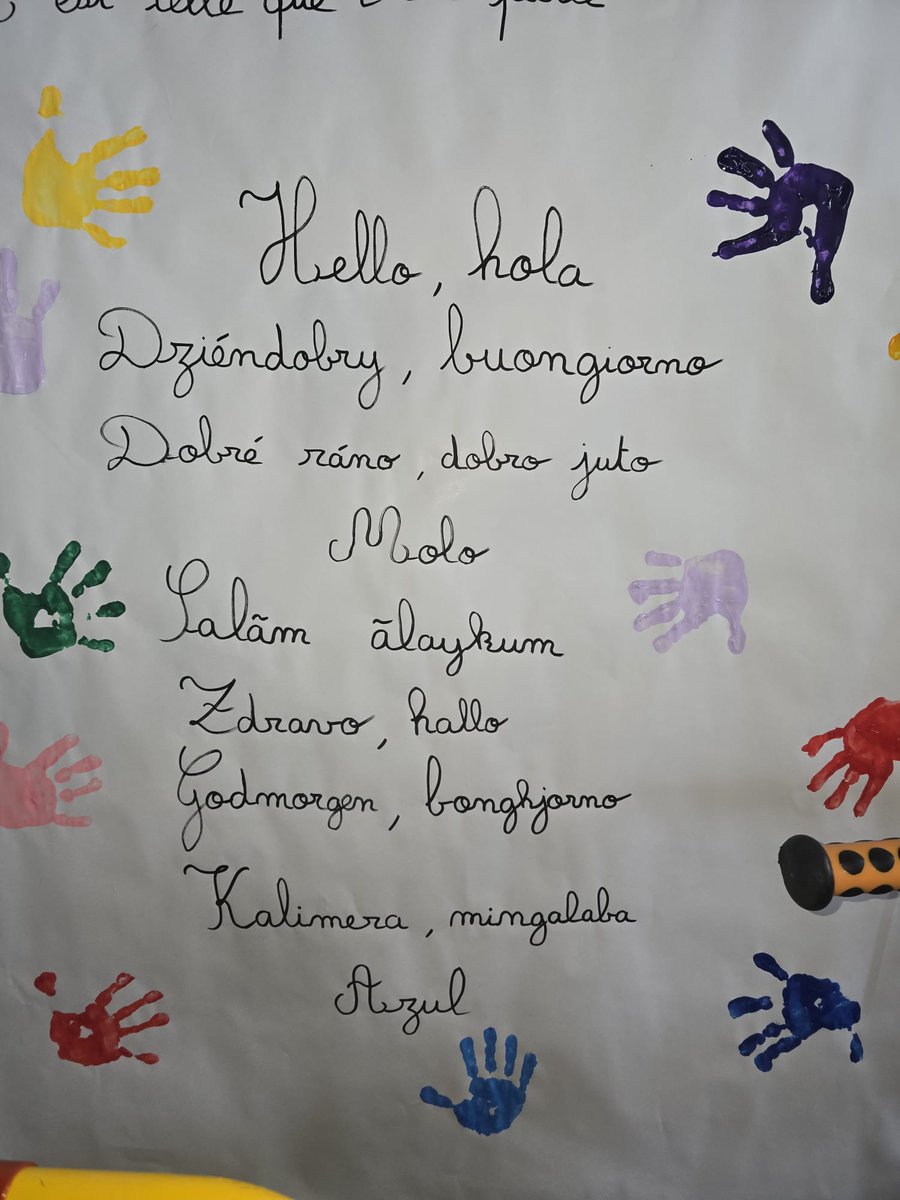 est celle que
Hello, hola
Dziéndobry, buongiorno
Dobré ráno, dobro juto
Molo
Salãm ãlaykum
Zdravo, hallo
Godmorgen, bonghjorno
Kalimera, mingalaba
Azul